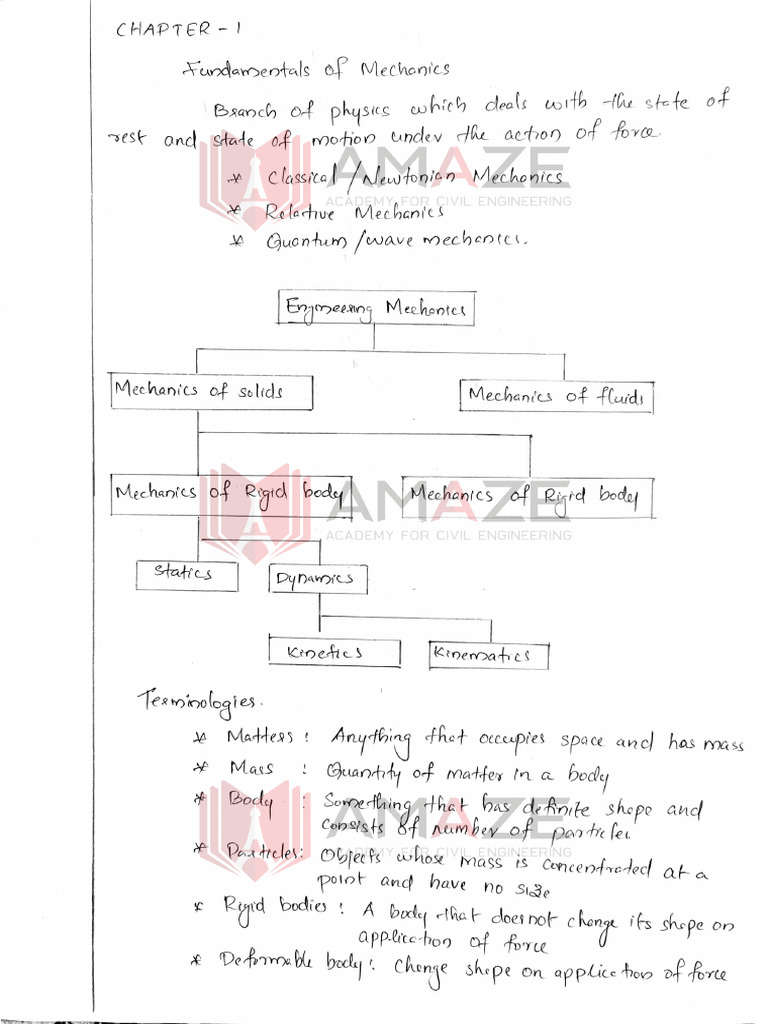 CHAPTER - 1
Fundamentals of Mechanics
Branch of physics which deals with the state of
rest and state of motion under the action of force.
* Classical / Newtonian Mechanics
* Relative Mechanics
* Quantum / wave mechanics.
AMAZE
ACADEMY FOR CIVIL ENGINEERING
Engineering Mechanics
Mechanics of solids
Mechanics of fluids
Mechanics of Rigid body
Mechanics of Rigid body
AMAZE
ACADEMY FOR CIVIL ENGINEERING
Statics
Dynamics
Kinetics
Kinematics
Terminologies.
* Matters : Anything that occupies space and has mass
* Mass : Quantity of matter in a body
* Body : Something that has definite shape and
consists of number of particles
* Particles: Objects whose mass is concentrated at a
point and have no size
AMAZE
ACADEMY FOR CIVIL ENGINEERING
* Rigid bodies : A body that doesnot change its shape on
application of force
* Deformable body : Change shape on application of force